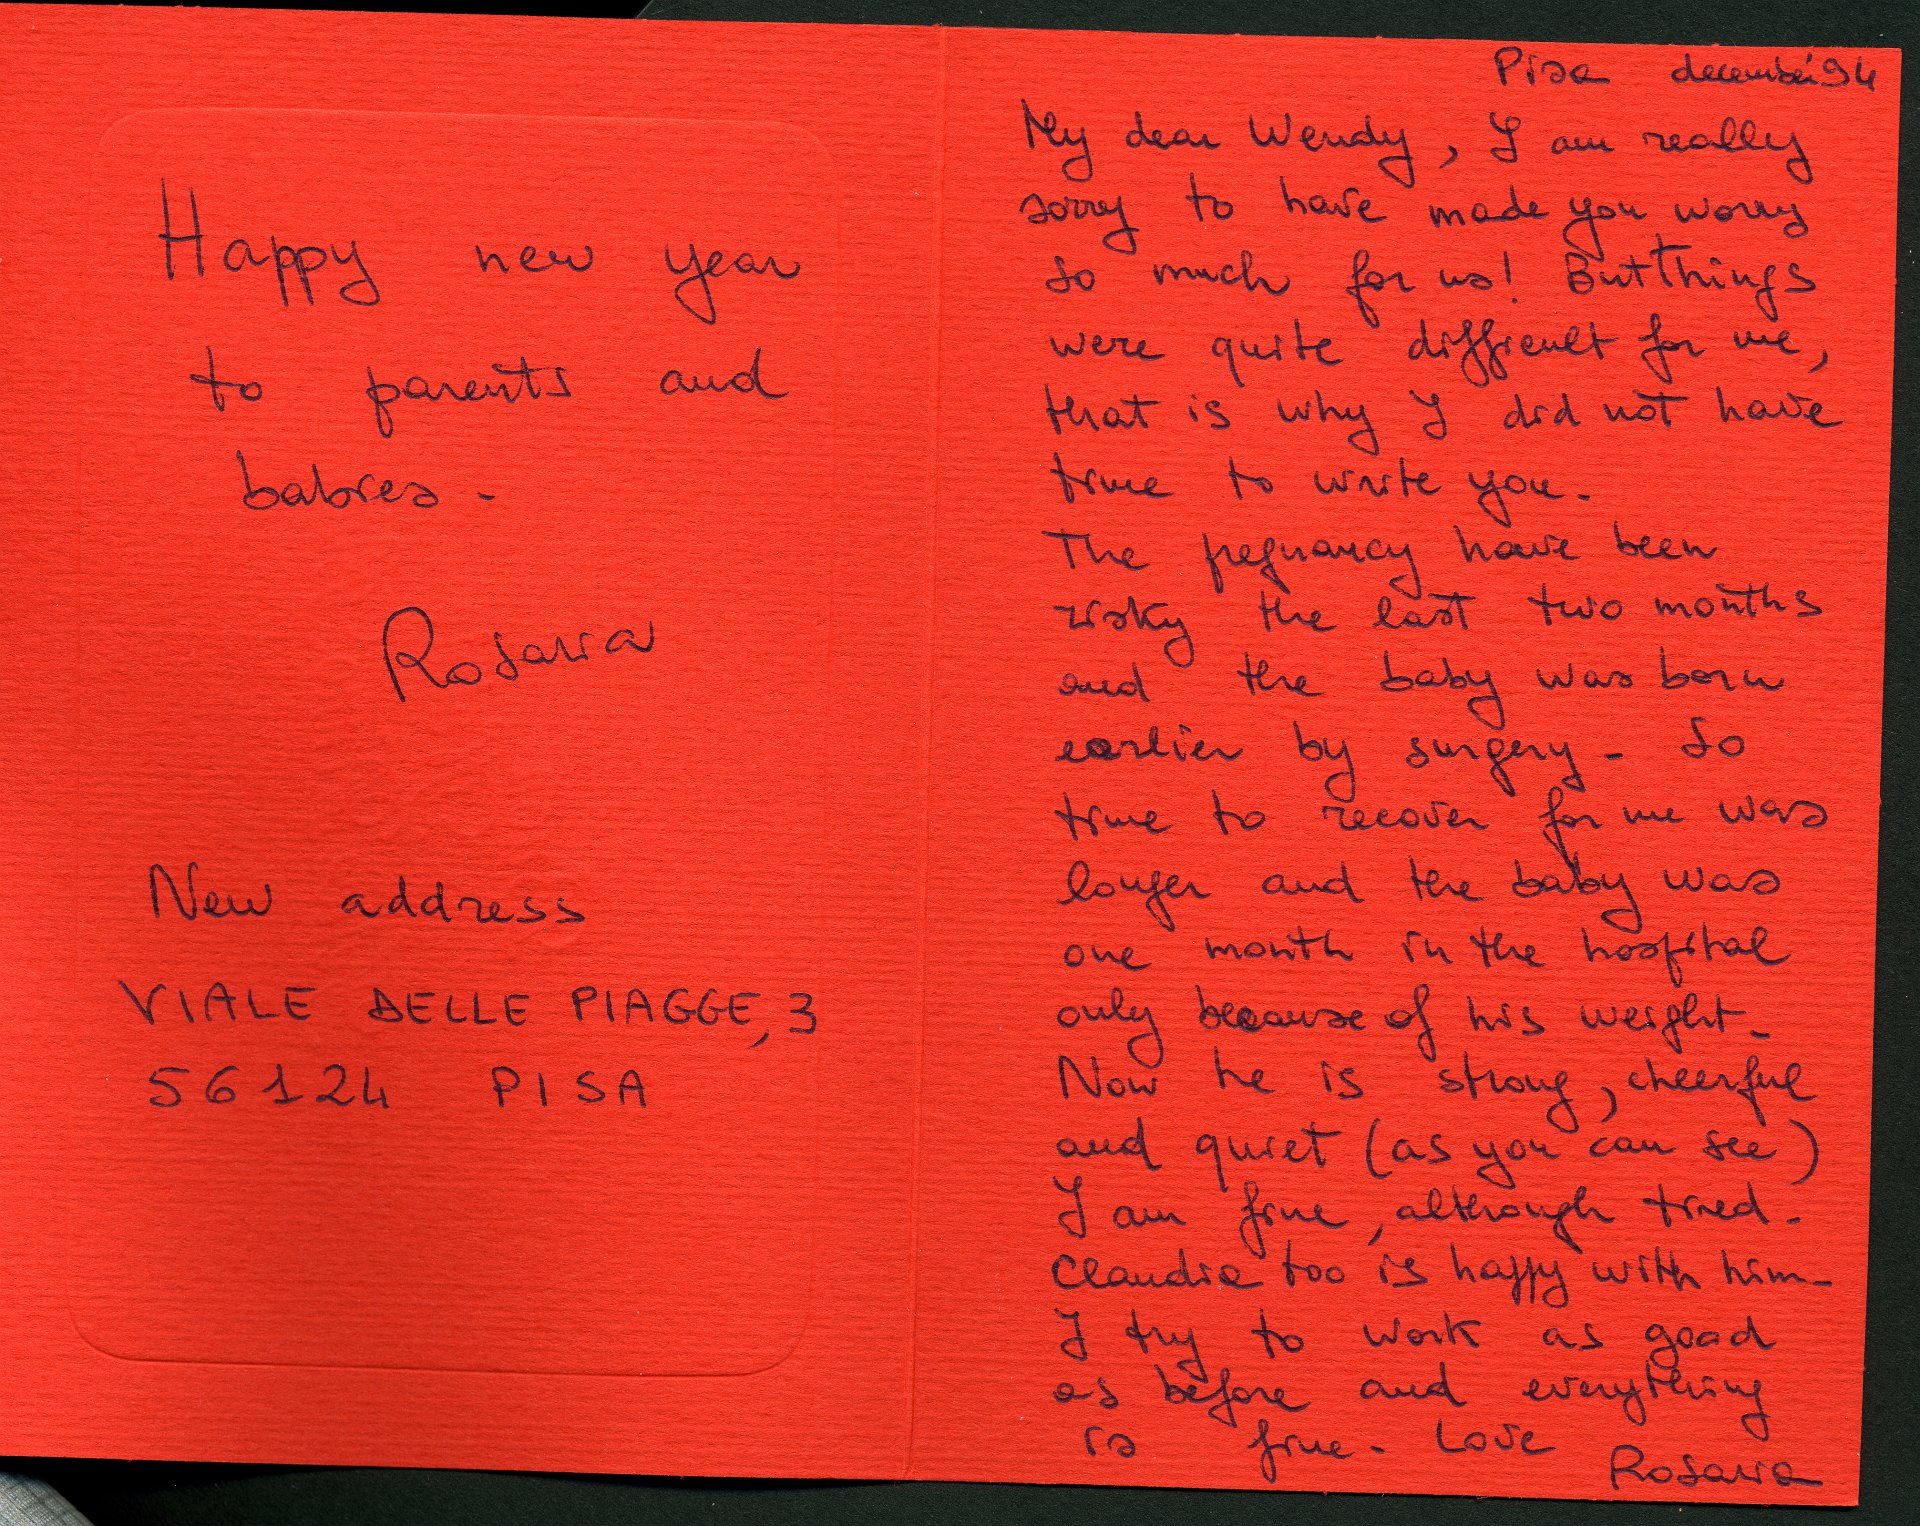 Happy new year
to parents and
babies -
Rosaria
New address
VIALE DELLE PIAGGE, 3
56124 PISA
Pisa december 94
My dear Wendy, I am really
sorry to have made you worry
so much for us! But things
were quite difficult for me,
that is why I did not have
time to write you -
The pegnancy have been
risky the last two months
and the baby was born
earlier by surgery - So
time to recover for me was
longer and the baby was
one month in the hospital
only because of his weight -
Now he is strong, cheerful
and quiet (as you can see)
I am fine, although tired -
Claudia too is happy with him -
I try to work as good
as before and everything
is fine - Love
Rosaria